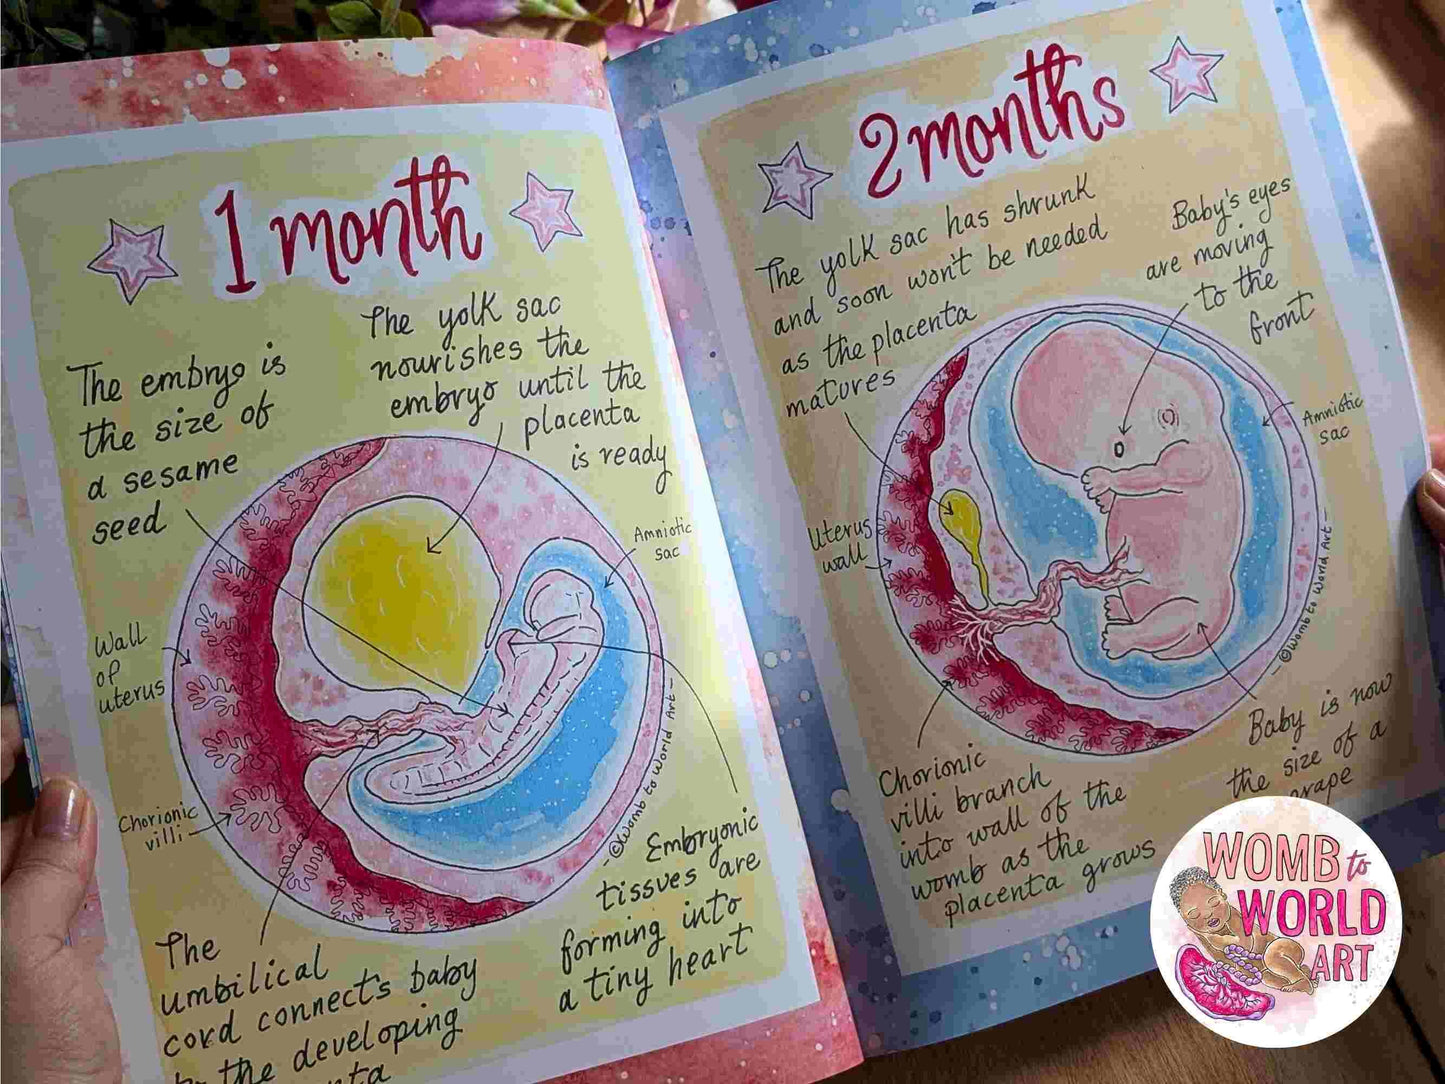 1 month
The embryo is
the size of
a sesame
seed
The yolk sac
nourishes the
embryo until the
placenta
is ready
Amniotic
sac
Wall
of
uterus
Chorionic
villi
©Womb to World Art
The
umbilical
cord connects baby
the developing
Embryonic
tissues are
forming into
a tiny heart
2 months
The yolk sac has shrunk
and soon won't be needed
as the placenta
matures
Baby's eyes
are moving
to the
front
Amniotic
sac
Uterus
wall
©Womb to World Art
Chorionic
villi branch
into wall of the
womb as the
placenta grows
Baby is now
the size of a
WOMB to
WORLD
ART